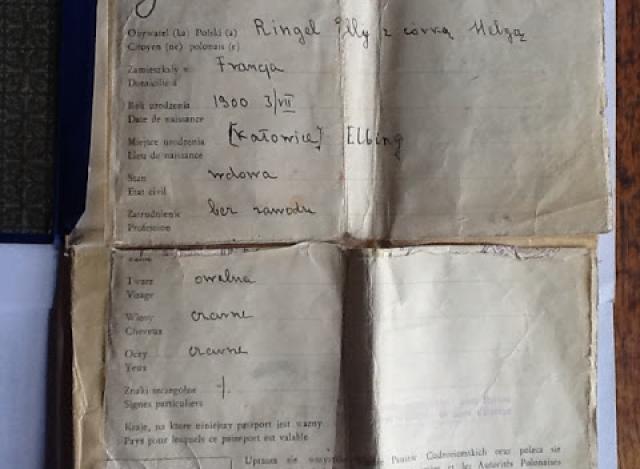 Obywatel (ka) Polski (a) Ringel Illy z córką Helgą
Citoyen (ne) polonais (e)
Zamieszkały w Francja
Domicilié à
Rok urodzenia 1900 3/VII
Date de naissance
Miejsce urodzenia [Katowice] Elbing
Lieu de naissance
Stan wdowa
Etat civil
Zatrudnienie bez zawodu
Profession
Twarz owalna
Visage
Włosy czarne
Cheveux
Oczy czarne
Yeux
Znaki szczególne
Signes particuliers
Kraje, na które niniejszy paszport jest ważny
Pays pour lesquels ce passeport est valable
Uprasza się wszystkie Władze Państw Cudzoziemskich oraz poleca się
les Autorités Polonaises